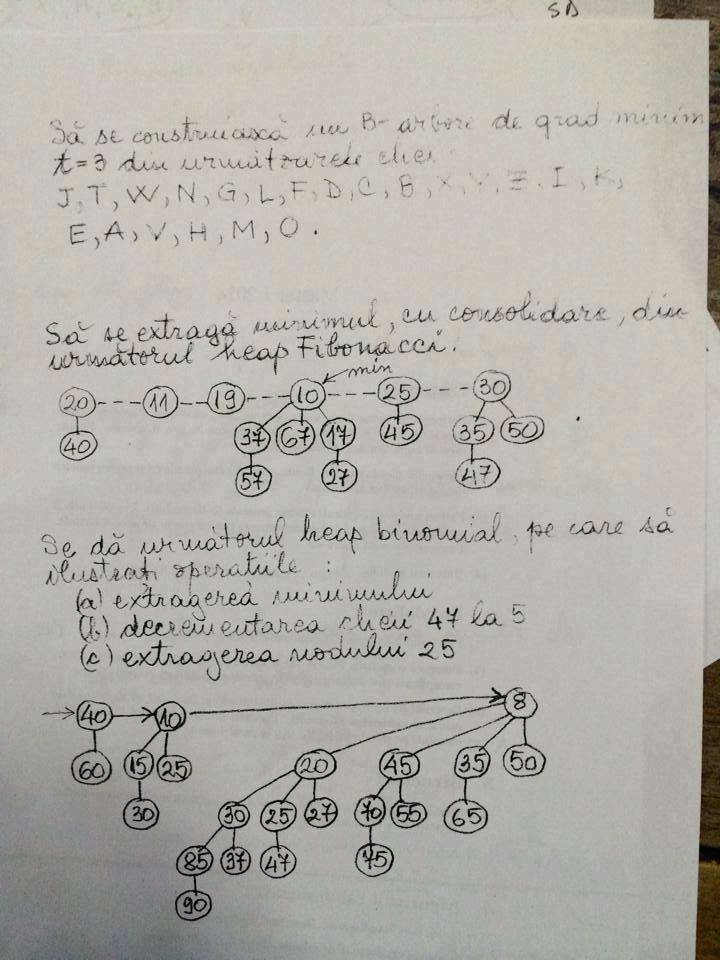 SD
Să se construiască un B-arbore de grad minim
t=3 din următoarele chei
J, T, W, N, G, L, F, D, C, B, X, Y, Z, I, K,
E, A, V, H, M, O.
Să se extragă minimul, cu consolidare, din
următorul heap Fibonacci.
min
20 11 19 10 25 30
40 37 67 17 45 35 50
57 27 47
Se dă următorul heap binomial, pe care să
ilustrați operațiile :
(a) extragerea minimului
(b) decrementarea cheii 47 la 5
(c) extragerea nodului 25
40 10 8
60 15 25 20 45 35 50
30 30 25 27 70 55 65
85 37 47 75
90